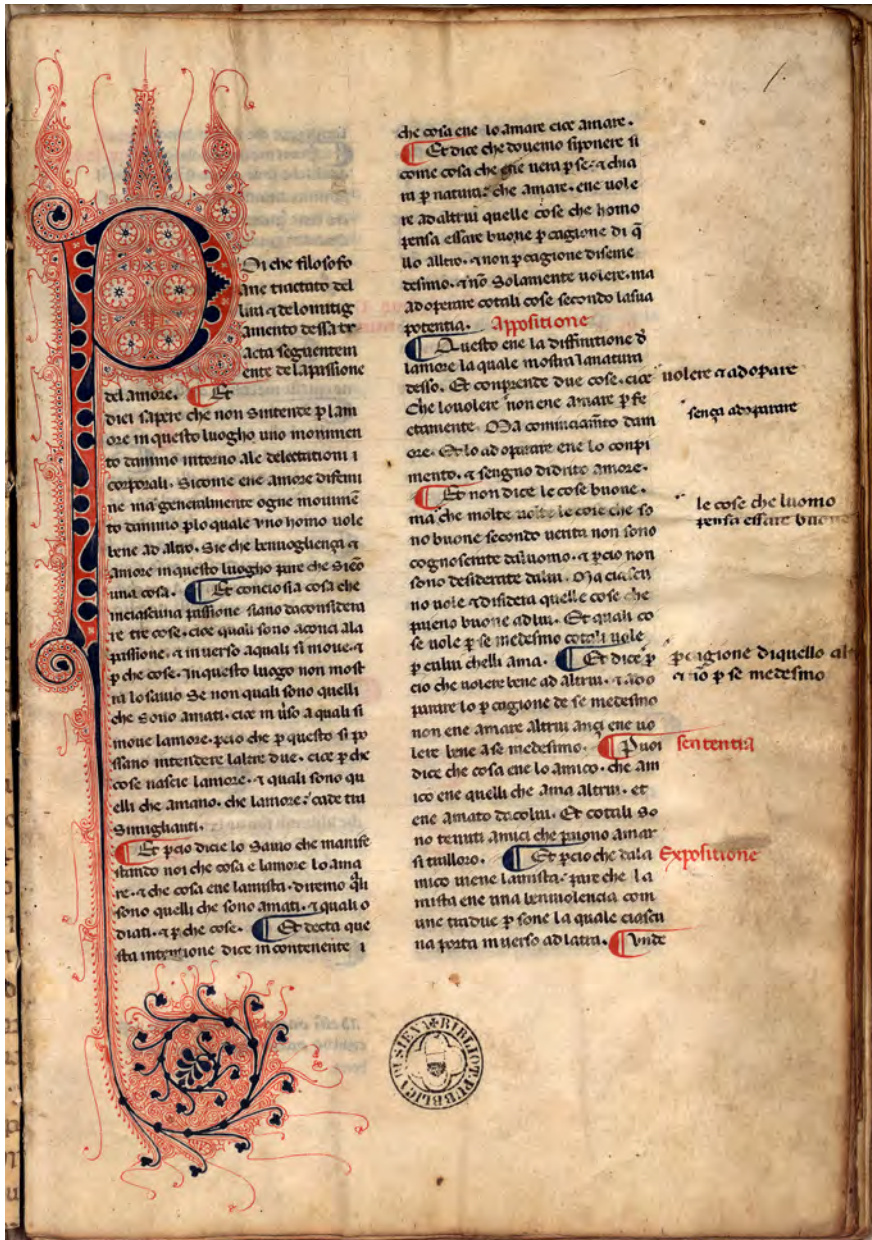 Poi che filosofo
ane tractato del
lira & delomitig
amento dessa tr
acta seguentem
ente delapassione
del amore. ¶ Et
dici sapere che non sintende p lam
ore in questo luogho uno mouimen
to danimo intorno ale delectationi i
corporali. Sicome ene amore disemi
ne ma generalmente ogne mouimē
to danimo plo quale vno homo uole
bene ad altro. Sie che beniuogliença &
amore in questo luogho pare che sieno
una cosa. ¶ Et concio sia cosa che
inciascuna passione siano daconsidera
re tre cose. cioe quali sono aconci ala
passione. & in uerso aquali si moue. &
p che cose. In questo luogo non most
ra lo sauio Se non quali sono quelli
che sono amati. cioe in uso a quali si
moue lamore. pcio che p questo si po
ssano intendere laltre due. cioe p che
cose nascie lamore. & quali sono qu
elli che amano. che lamore cade tra
Simiglianti.
¶ Et pcio dicie lo Sauio che manife
stando noi che cosa e lamore lo ama
re. & che cosa ene lamista. diremo q̄li
sono quelli che sono amati. & quali o
diati. & p che cose. ¶ Et decta que
sta intençione dice incontenente i
che cosa ene lo amare cioe amare.
¶ Et dice che douemo siponere si
come cosa che gne uera p se. & chia
ra p natura. che amare. ene uole
re adaltrui quelle cose che homo
pensa essare buone p cagione di q̄
llo altro. & non p cagione diseme
desimo. & nō Solamente uolere. ma
ad operare cotali cose secondo lasua
potentia. Appositione
¶ Questo ene la diffinitione d
lamore la quale mostra lanatura
desso. Et conprende due cose. cioe
Che louolere non ene amare p fe
ctamente. Ma cominciam̄to dam
ore. Et lo ad operare ene lo conpi
mento. & sengno didrito amore.
¶ Et non dice le cose buone.
ma che molte uolte le cose che so
no buone secondo uerita non sono
cognosciute daluomo. & pcio non
sono desiderate dalui. Ma ciascu
no uole & disidera quelle cose che
paieno buone adlui. Et quali co
se uole p se medesmo cotali uole
p colui chelli ama. ¶ Et dice p
cio che uolere bene ad altrui. & ado
parare lo p cagione de se medesmo
non ene amare altrui ançi ene uo
lere bene a se medesmo. ¶ Puoi
dice che cosa ene lo amico. che am
ico ene quelli che ama altrui. et
ene amato dacolui. Et cotali so
no tenuti amici che paiono amar
si tralloro. ¶ Et pcio che dala
mico uiene lamista. pare che la
mista ene una beniuolencia com
une tradue p sone la quale ciascu
na porta in uerso ad latra. ¶ Vnde
uolere & adoprare
sença adoparare
le cose che luomo
pensa essare buone
p cagione diquello al
& nō p se medesmo
sententia
Expositione
BIBLIOT. PUBBLICA DI SIENA